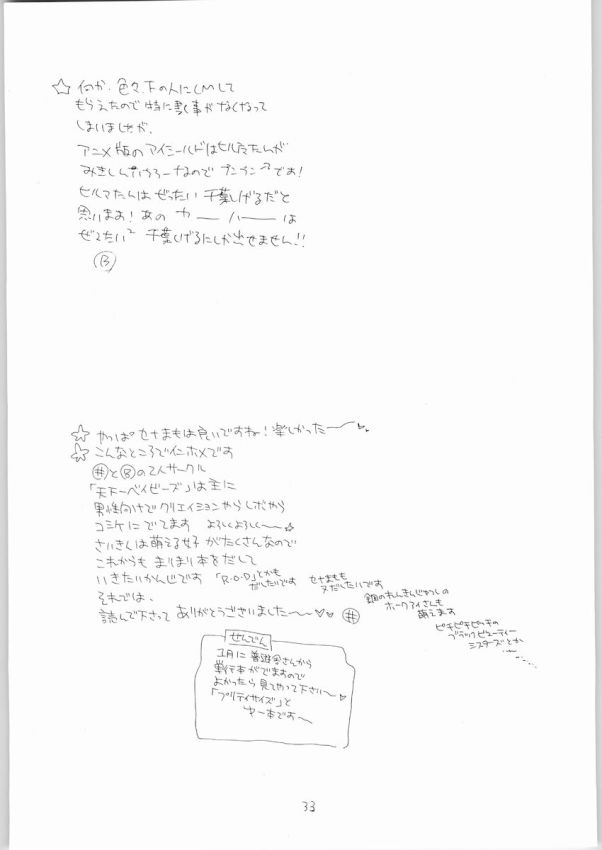 ☆ 何か、色々下の人にCMして
もらえたので特に書く事がなくなって
しまいましたが、
アニメ版のアイシールドはヒル魔たんが
なのでプンプンでお!
ヒルマたんはぜったい千葉しげるだと
思いまお! あの カー ハー は
ぜったい² 千葉しげるにしか出せません!!
☆ やっぱセナまもは良いですね! 楽しかった〜
☆ こんなところで
#と⑧の2人サークル
「天下一ベイビーズ」は主に
男性向けでクリエイションやらレボやら
コミケにでてます よろしくよろしく〜☆
さいきんは萌える女子がたくさんなので
これからも まりまり本をだして
いきたいかんじです 「R.O.D」とかも
だしたいです セナまもも
だしたいです
鋼のれんきんじゅつしの
ホークアイさんも
萌えます
ピチピチピッチの
ブラックビューティー
シスターズとか
それでは、
読んで下さって ありがとうございました〜〜♡♡ #
せんでん
1月に さんから
単行本がでますので
よかったら見てやって下さい〜♡
「プリティサイズ」と
本です〜
33